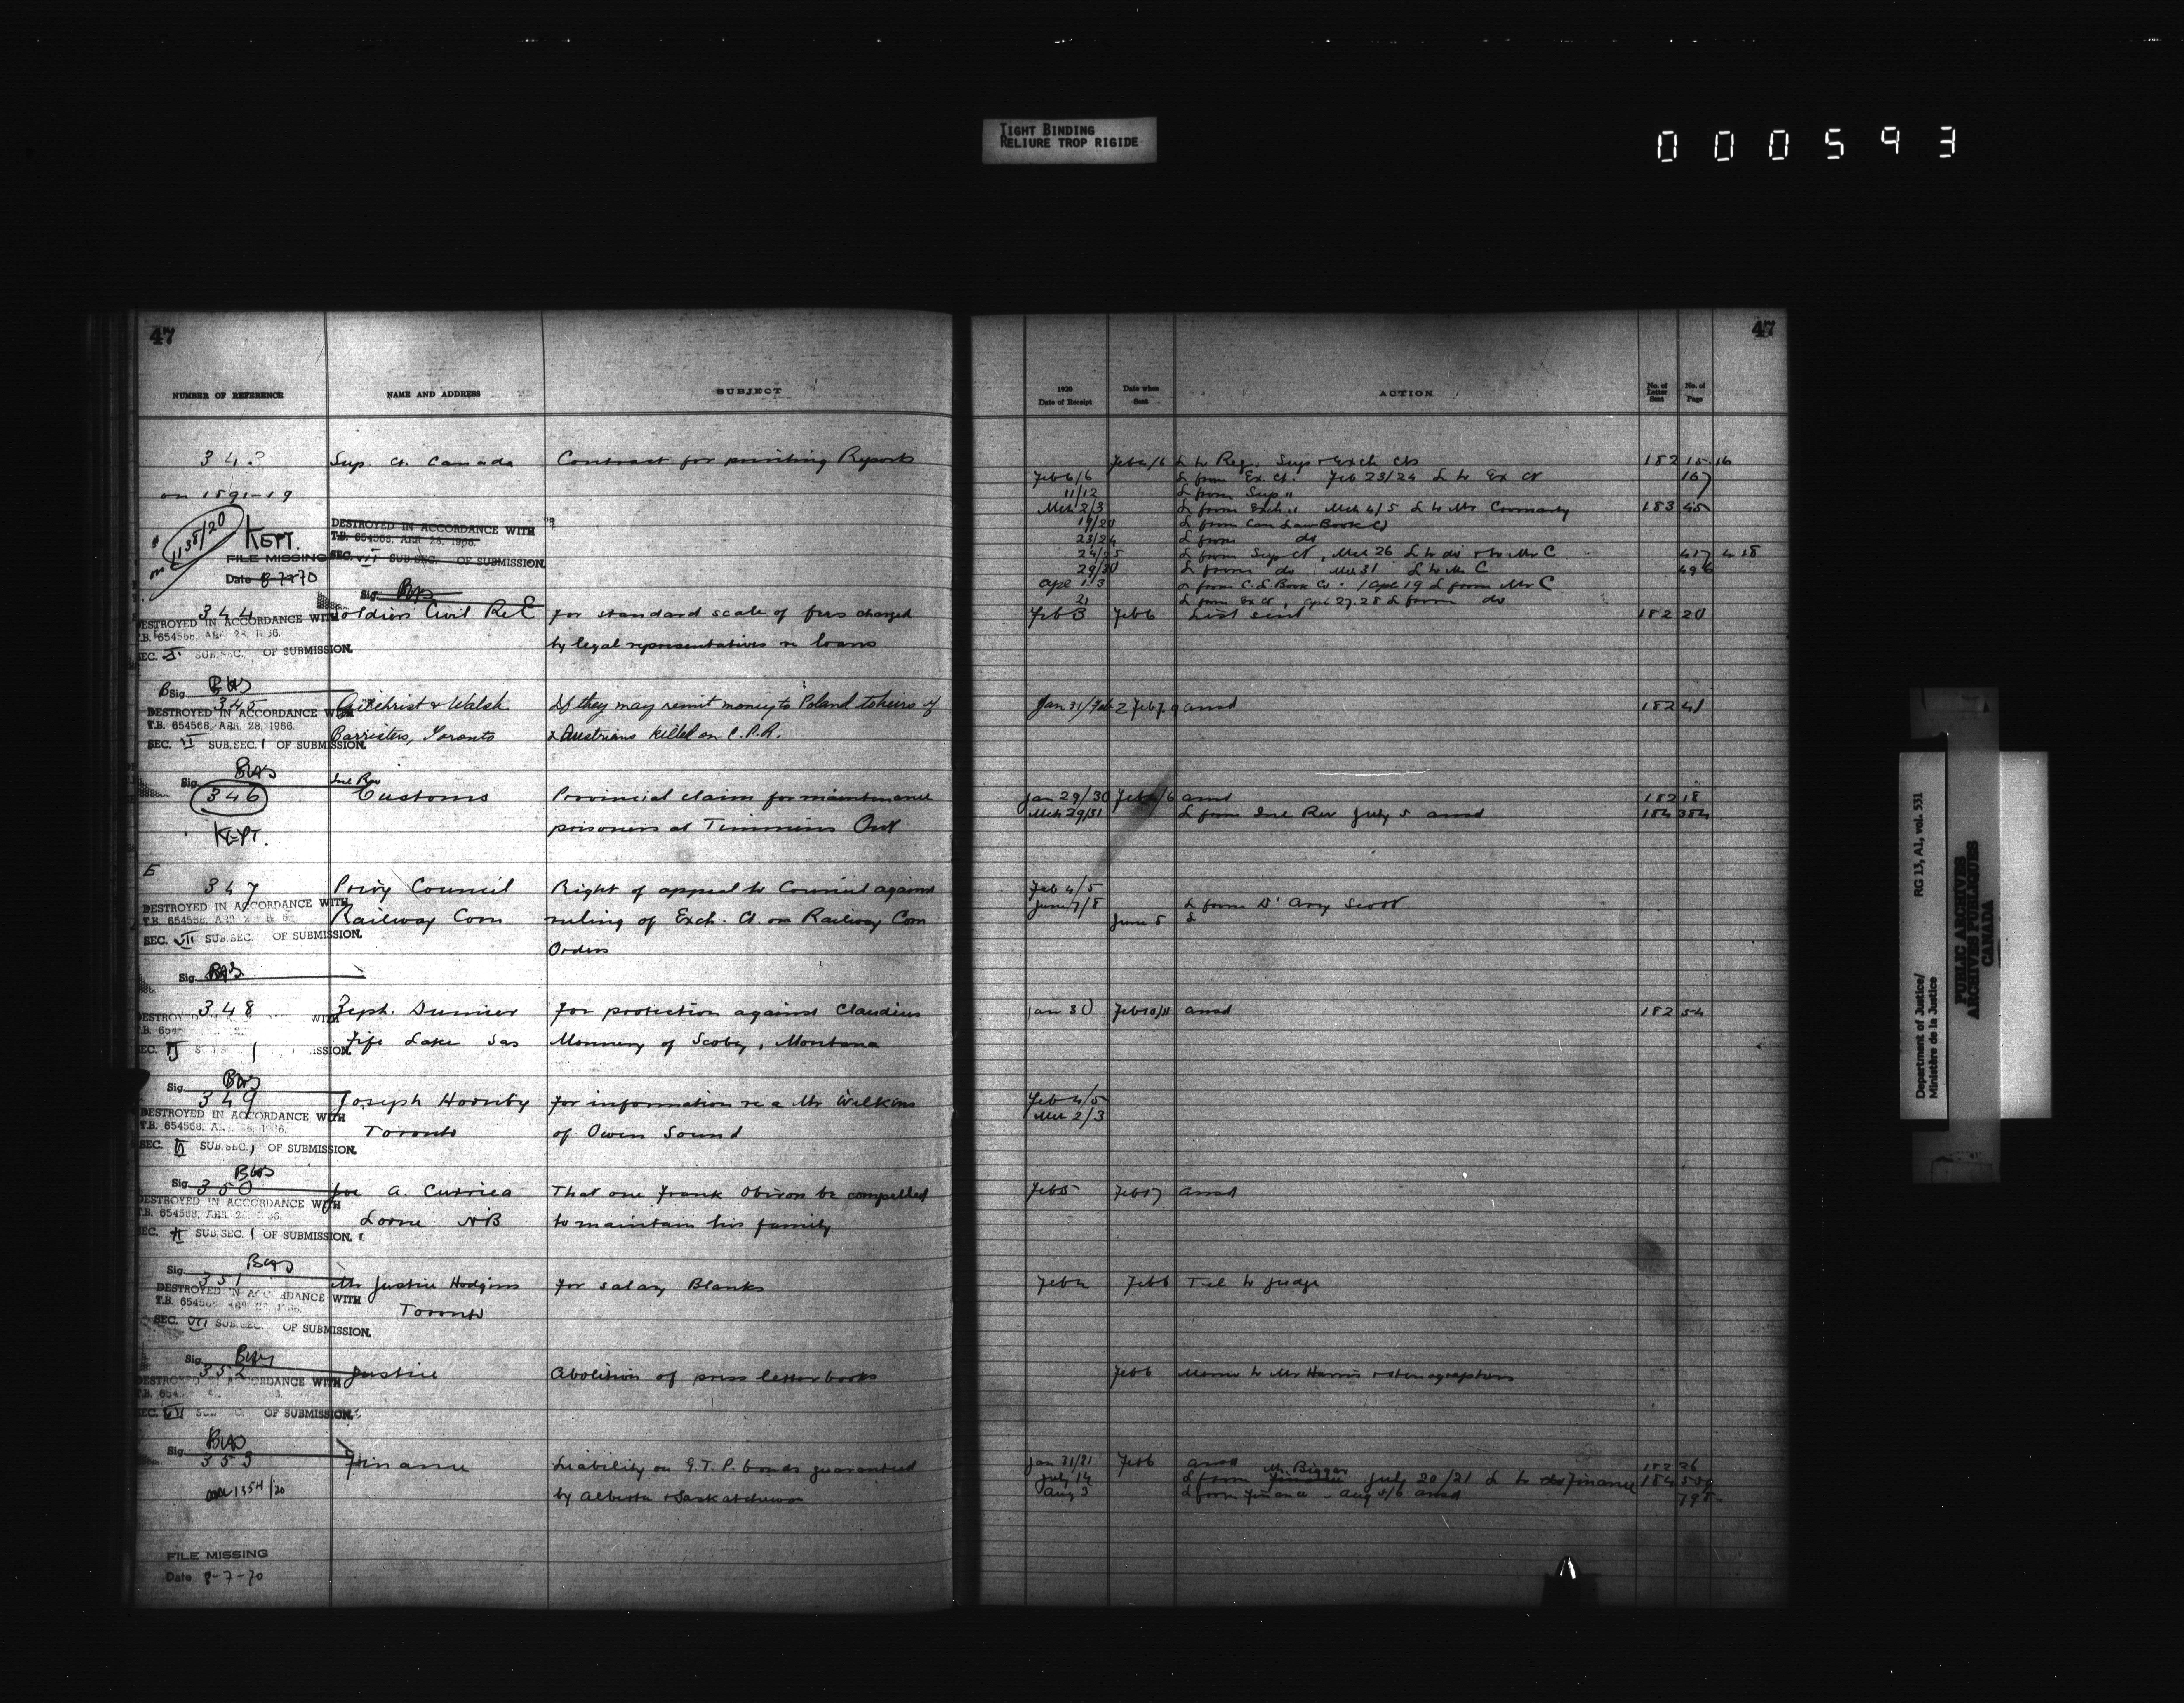 TIGHT BINDING
RELIURE TROP RIGIDE
000593
47
NUMBER OF REFERENCE NAME AND ADDRESS SUBJECT
343 Sup. Ct. Canada Contract for printing Reports
on 1891-19
on 1138/20
KEPT.
DESTROYED IN ACCORDANCE WITH
T.B. 654568, APR. 28, 1966.
SEC. VII SUB.SEC. OF SUBMISSION.
FILE MISSING
Date 8-7-70
Sig.
344 Soldiers Civil Re E for standard scale of fees charged
DESTROYED IN ACCORDANCE WITH
T.B. 654568, APR. 28, 1966.
by legal representatives re loans
SEC. SUB.SEC. OF SUBMISSION.
Sig.
345 Gilchrist & Walsh If they may remit money to Poland to heirs of
DESTROYED IN ACCORDANCE WITH
T.B. 654568, APR. 28, 1966.
Barristers, Toronto 2 Austrians killed on C.P.R.
SEC. VI SUB.SEC. 1 OF SUBMISSION.
Sig.
Inl Rev
346 Customs Provincial claim for maintenance
prisoners at Timmins Ont
KEPT.
E
347 Privy Council Right of appeal to Council against
DESTROYED IN ACCORDANCE WITH
T.B. 654568,
Railway Com ruling of Exch. Ct. on Railway Com
SEC. VII SUB.SEC. OF SUBMISSION.
Orders
Sig.
348 Zeph. For protection against Claudius
Fife Lake Sas of Scobey, Montana
Sig.
349 Joseph Hornby For information re a Mr Wilkins
DESTROYED IN ACCORDANCE WITH
T.B. 654568,
Toronto of Owen Sound
SEC. VI SUB.SEC. 1 OF SUBMISSION.
Sig.
350 Joe A. That one Frank be compelled
DESTROYED IN ACCORDANCE WITH
T.B. 654568,
Lorne NB to maintain his family
SEC. SUB.SEC. 1 OF SUBMISSION.
Sig.
351 Mr Justice Hodgins For salary Blanks
DESTROYED IN ACCORDANCE WITH
Toronto
SEC. VII SUB.SEC. OF SUBMISSION.
Sig.
352 Justice Abolition of press letter books
DESTROYED IN ACCORDANCE WITH
SEC. VII OF SUBMISSION.
Sig.
353 Finance Liability on G.T.P. bonds guaranteed
on 1354/20 by Alberta & Saskatchewan
FILE MISSING
Date 8-7-70
47
1920
Date of Receipt
Date when
Sent
ACTION
No. of
Letter
Sent
No. of
Page
L to Reg. Sup & Exch Cts 182 15.16
Feb 6/6 L from Ex. Ct. Feb 23/24 L to Ex Ct 167
11/12 L from Sup "
Mch 2/3 L from Exch " Mch 4/5 L to Mr 183 45
19/20 L from Can Law Book Co
23/24 L from do
24/25 L from Sup Ct, Mch 26 L to do & to Mr C 417 418
29/30 L from do Mch 31 L to Mr C 496
Apl 1.3 L from C L Book Co. Apl 19 L from Mr C
21 L from Ex Ct, Apl 27.28 L from do
Feb 6 List sent 182 20
Jan 31/Feb 2 Feb 7.9 ansd 182 41
Jan 29/30 Feb /6 ansd 182 18
Mch 29/31 L from Inl Rev July 5 ansd 184 384
Feb 4/5
June 7/8 L from D'Arcy Scott
June 8 L
Jan 30 Feb 10/11 ansd 182 54
Feb 4/5
Mch 2/3
Feb 5 Feb 17 ansd
Feb 4 Feb 6 Tel to Judge
Feb 6 Memo to Mr Harris & stenographers
Jan 31/ Feb 6 ansd 182 26
July 14 L from Mr. Biggar July 20/21 L to Finance 184
Aug 3 L from Finance Aug 5/6 ansd
Department of Justice/
Ministère de la Justice
RG 13, A1, vol. 531
PUBLIC ARCHIVES
ARCHIVES PUBLIQUES
CANADA